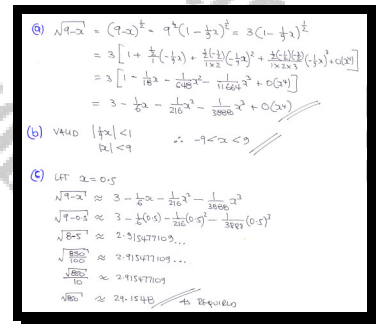 (a) √(9-x) = (9-x)^½ = 9^½(1-⅑x)^½ = 3(1-⅑x)^½
= 3[1 + ½/1(-⅑x) + ½(-½)/(1×2)(-⅑x)² + ½(-½)(-3/2)/(1×2×3)(-⅑x)³ + O(x⁴)]
= 3[1 - 1/18x - 1/648x² - 1/11664x³ + O(x⁴)]
= 3 - 1/6x - 1/216x² - 1/3888x³ + O(x⁴)
(b) VALID |⅑x| < 1 ∴ -9 < x < 9
|x| < 9
(c) LET x = 0.5
√(9-x) ≈ 3 - 1/6x - 1/216x² - 1/3888x³
√(9-0.5) ≈ 3 - 1/6(0.5) - 1/216(0.5)² - 1/3888(0.5)³
√8.5 ≈ 2.915477109...
√(850/100) ≈ 2.915477109...
√850/10 ≈ 2.915477109
√850 ≈ 29.1548 AS REQUIRED